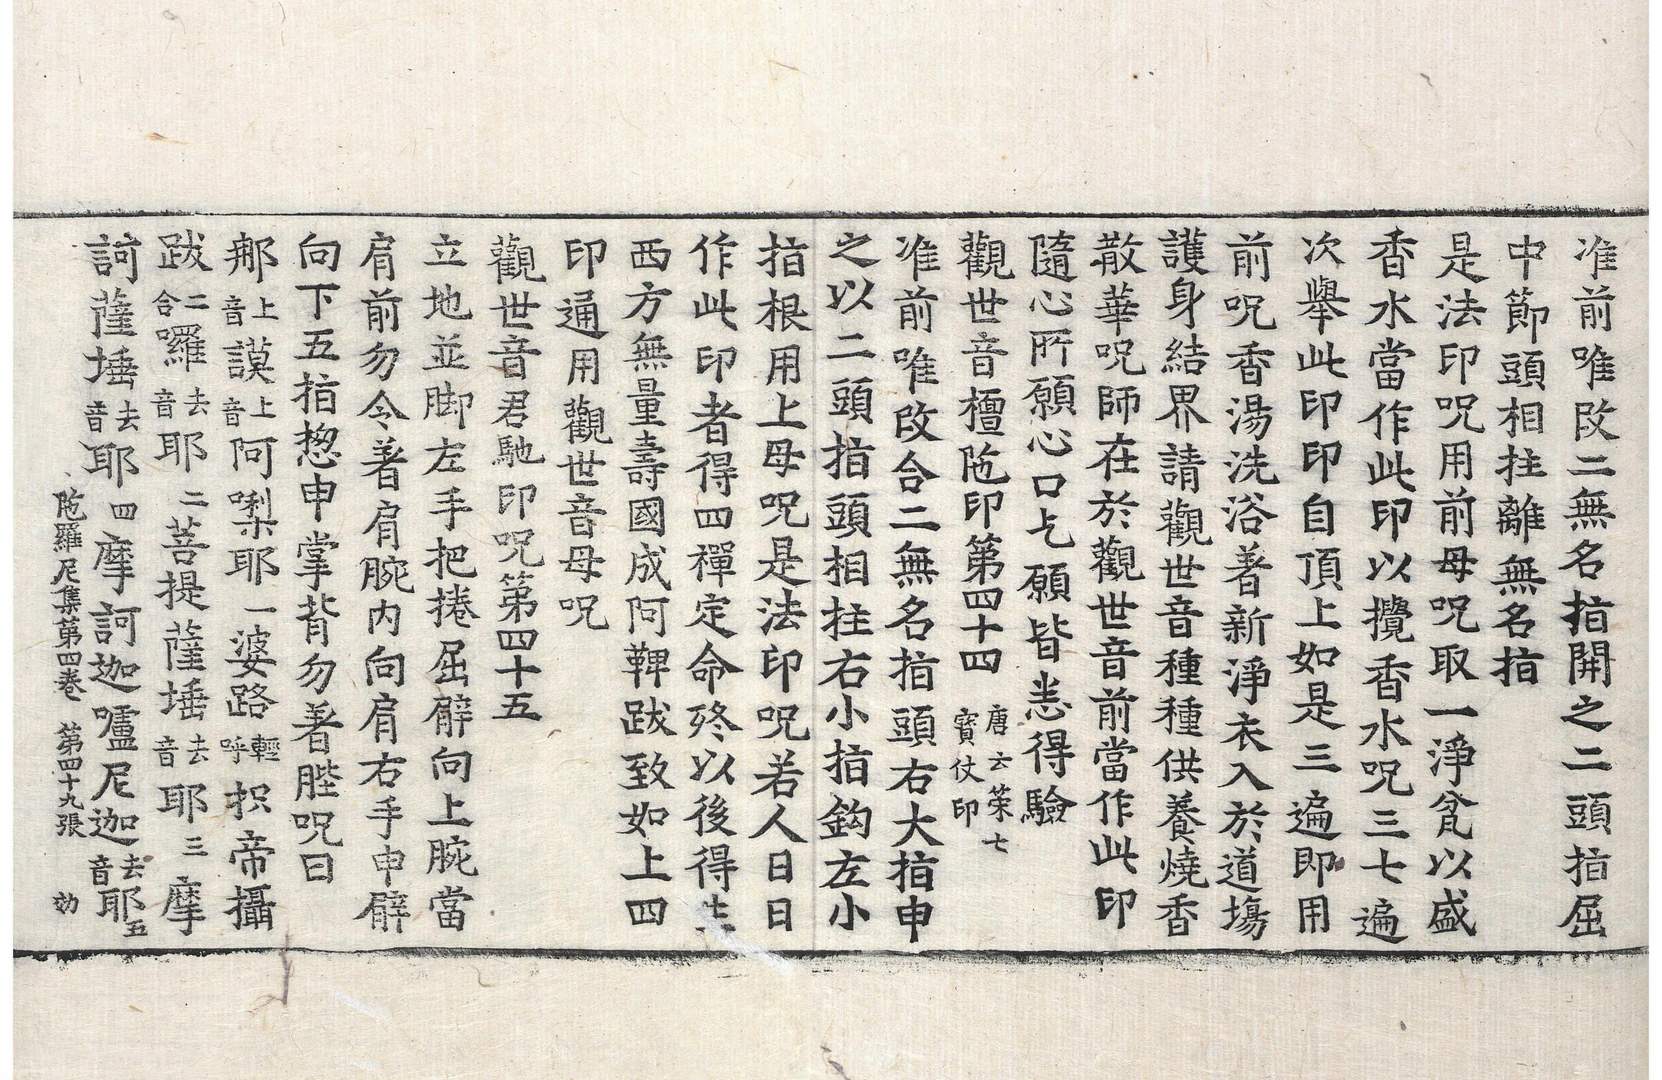 准前唯改二無名指開之二頭指屈
中節頭相拄離無名指
是法印呪用前母呪取一淨瓫以盛
香水當作此印以攪香水呪三七遍
次舉此印印自頂上如是三遍即用
前呪香湯洗浴著新淨衣入於道場
護身結界請觀世音種種供養燒香
散華呪師在於觀世音前當作此印
隨心所願心口乞願皆悉得驗
觀世音檀陁印第四十四 唐云棨七寶仗印
准前唯改合二無名指頭右大指申
之以二頭指頭相拄右小指鈎左小
指根用上母呪是法印呪若人日日
作此印者得四禪定命終以後得生
西方無量壽國成阿鞞跋致如上四
印通用觀世音母呪
觀世音君馳印呪第四十五
立地並脚左手把捲屈臂向上腕當
肩前勿令著肩腕內向肩右手申臂
向下五指惣申掌背勿著䏶呪曰
那上音謨上音阿唎耶一婆路輕呼抧帝攝
跋二合囉去音耶二菩提薩埵去音耶三摩
訶薩埵去音耶四摩訶迦嚧尼迦去音耶五
陁羅尼集第四卷 第四十九張 効